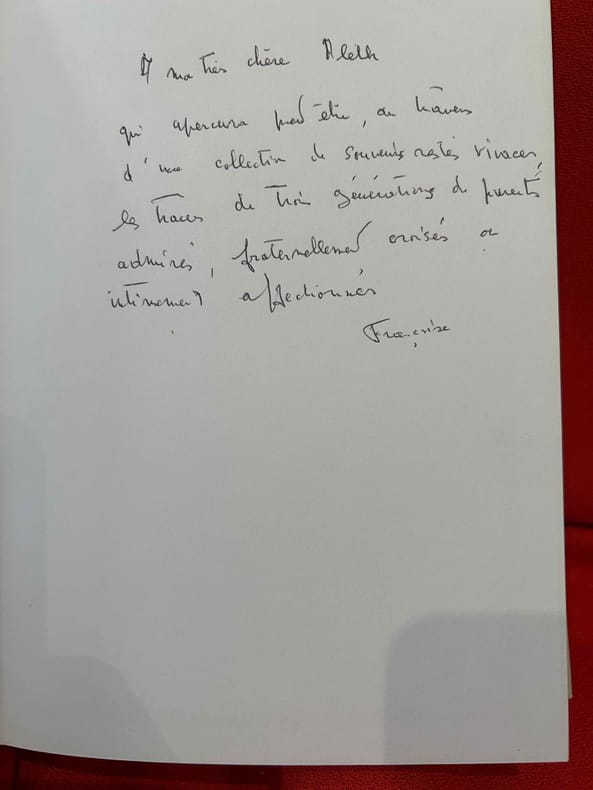 A ma très chère Aleth
qui apercevra peut être, au travers
d'une collection de souvenirs restés vivaces,
les traces de trois générations de parents
admirés, fraternellement croisés ou
intimement affectionnés
Françoise